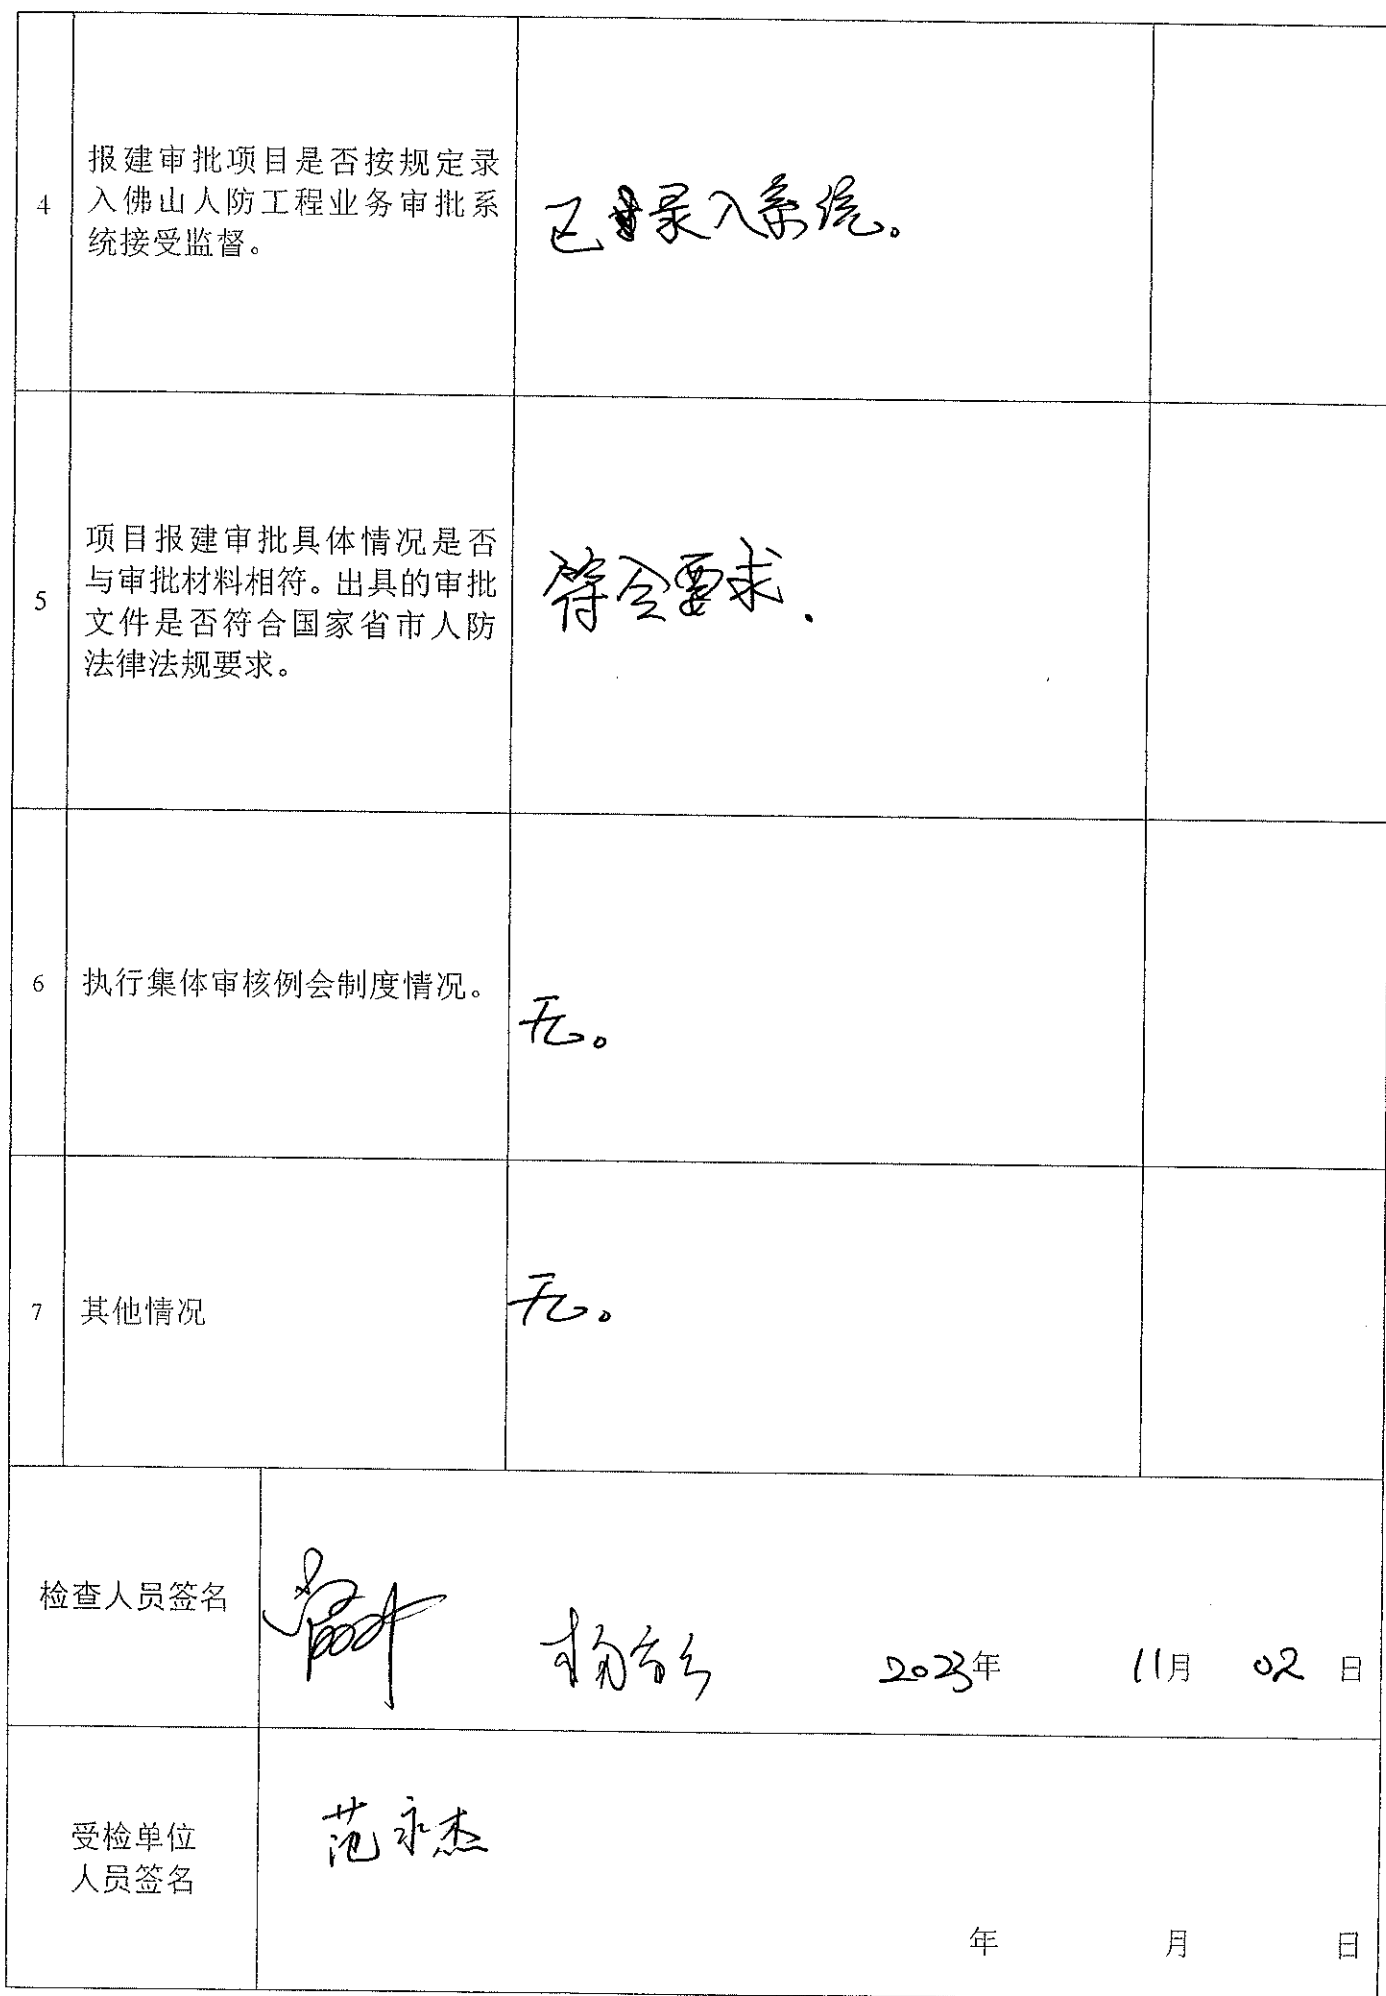 4
报建审批项目是否按规定录
入佛山人防工程业务审批系
统接受监督。
已录入系统。
5
项目报建审批具体情况是否
与审批材料相符。出具的审批
文件是否符合国家省市人防
法律法规要求。
符合要求.
6
执行集体审核例会制度情况。
无。
7
其他情况
无。
检查人员签名
2023年 11月 02 日
受检单位
人员签名
范永杰
年 月 日